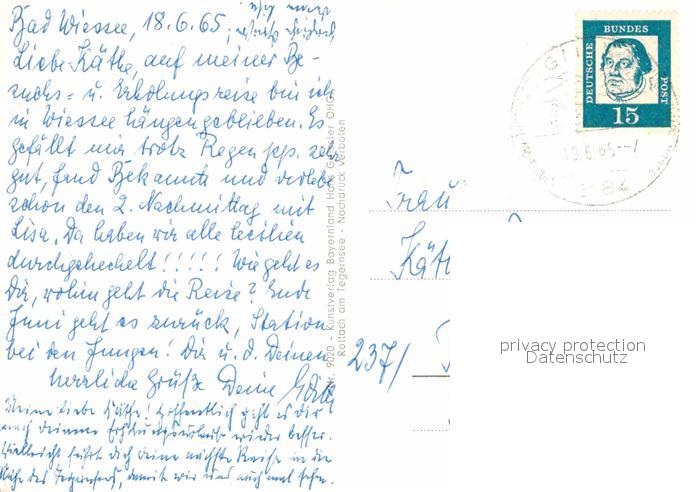 Bad Wiessee, 18.6.65,
Liebe Käthe, auf meiner Be-
suchs- u. Erholungsreise bin ich
in Wiessee hängengeblieben. Es
gefällt mir trotz Regen pp. sehr
gut, fand Bekannte und verlebe
schon den 2. Nachmittag mit
Lisa. Da haben wir alle
durchgehechelt!!!!! Wie geht es
Dir, wohin geht die Reise? Ende
Juni geht es zurück, Station
bei den Jungen! Dir u. d. Deinen
herzliche Grüße Deine
Meine liebe Käthe! Hoffentlich geht es dir
nach deinem Erholungsurlaub wieder besser.
Vielleicht führt dich deine nächste Reise in die
Nähe des Tegernsees, damit wir uns auch mal sehen.
Nr. 9020 - Kunstverlag Bayernland Hans Geissler OHG
Rottach am Tegernsee - Nachdruck verboten
DEUTSCHE BUNDES POST
15
19.6.65--7
Frau
Käth
237/
privacy protection
Datenschutz